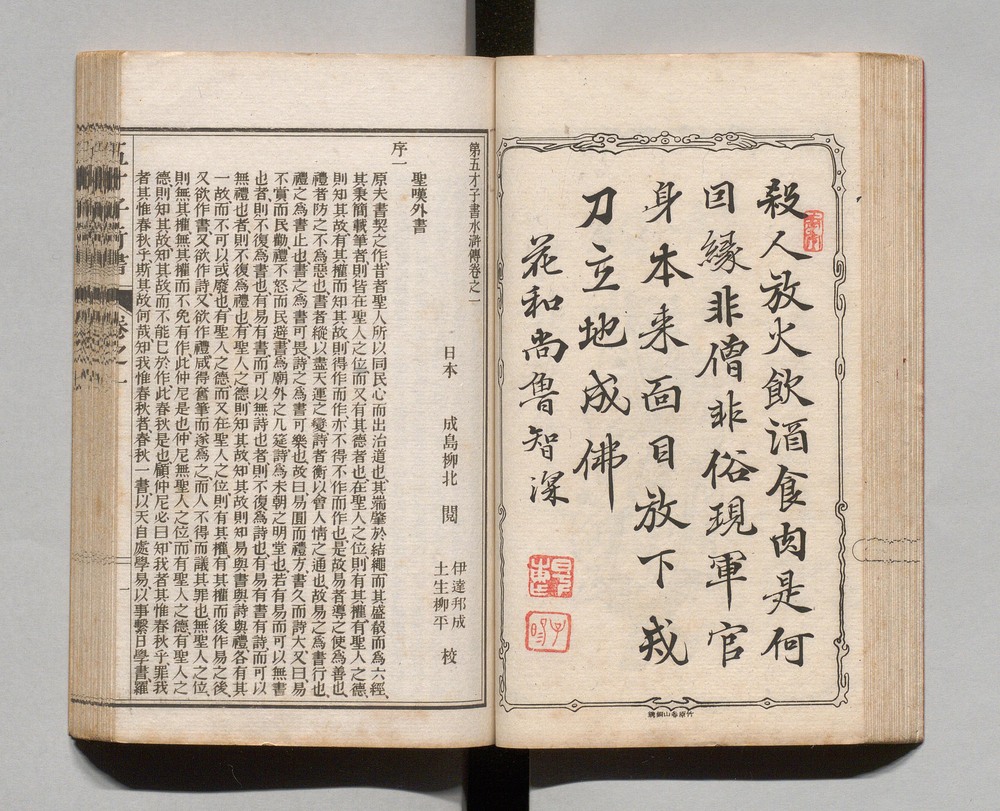 殺人放火飲酒食肉是何
囙縁非僧非俗現軍官
身本来面目放下戒
刀立地成佛
花和尚魯智深
第五才子書水滸傳卷之一
日本 成島柳北 閲
伊達邦成
土生柳平 校
聖嘆外書
序一
原夫書契之作昔者聖人所以同民心而出治道也其端肇於結繩而其盛殽而爲六經、
其秉簡載筆者則皆在聖人之位而又有其德者也在聖人之位則有其權有聖人之德、
則知其故有其權而知其故則得作而作亦不得不作而作也是故易者導之使爲善也、
禮者防之不爲惡也書者縱以盡天運之變詩者衡以會人情之通也故易之爲書行也、
禮之爲書止也書之爲書可畏詩之爲書可樂也故曰易圓而禮方書久而詩大又曰易
不賞而民勸禮不怒而民避書爲廟外之几筵詩爲未朝之明堂也若有易而可以無書
也者則不復爲書也有易有書而可以無詩也者則不復爲詩也有易有書有詩而可以
無禮也者則不復爲禮也有聖人之德則知其故知其故則知易與書與詩與禮各有其
一故而不可以或廢也有聖人之德而又在聖人之位則有其權有其權而後作易之後
又欲作書又欲作詩又欲作禮咸得奮筆而遂爲之而人不得而議其罪也無聖人之位、
則無其權無其權而不免有作此仲尼是也仲尼無聖人之位而有聖人之德有聖人之
德則知其故知其故而不能已於作此春秋是也顧仲尼必曰知我者其惟春秋乎罪我
者其惟春秋乎斯其故何哉知我惟春秋者春秋一書以天自處學易以事繫日學書羅